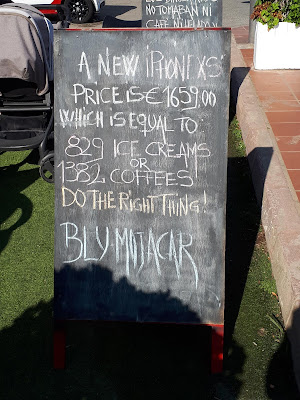 NO TOMABAN NI
CAFÉ NI HELADO
A NEW iPHONE XS
PRICE IS € 1659,00
WHICH IS EQUAL TO:
829 ICE CREAMS
OR
1382 COFFEES
DO THE RIGHT THING!
BLY MOJACAR